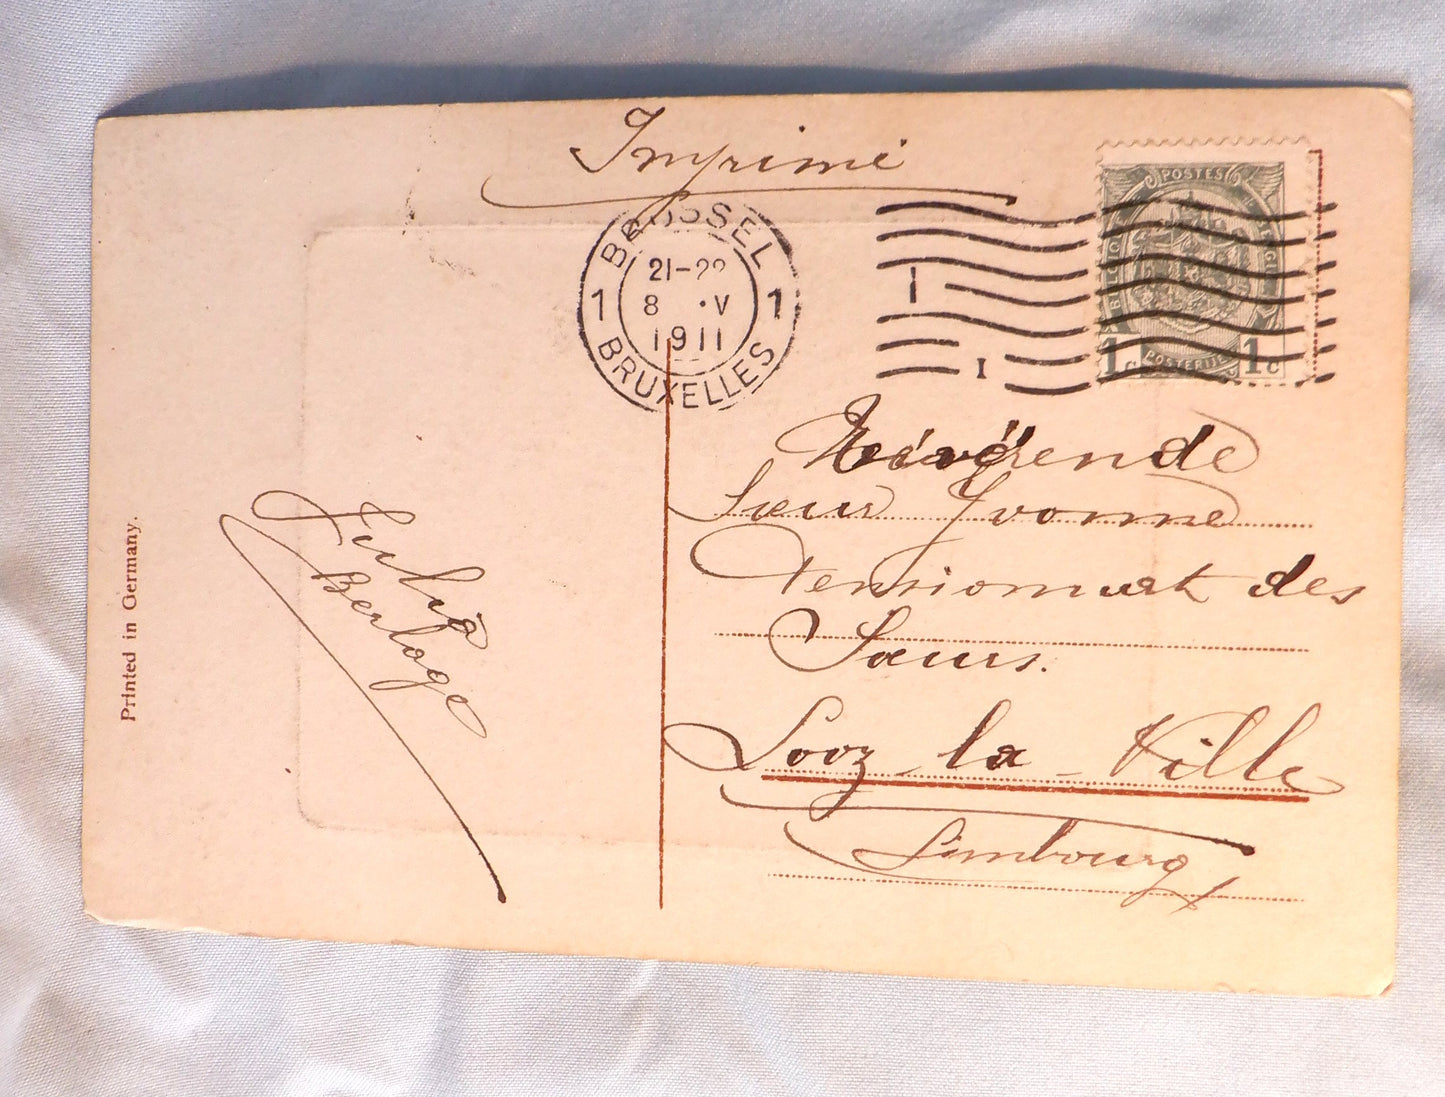 Imprimé
BRUSSEL
1 21-22 1
8 ·V
1911
BRUXELLES
I
POSTES
BELGIQUE
BELGIE
1c POSTERIJEN 1c
Révérende
Sœur Yvonne
Pensionnat des
Sœurs.
Looz-la-Ville
Limbourg
Julia
Berloge
Printed in Germany.